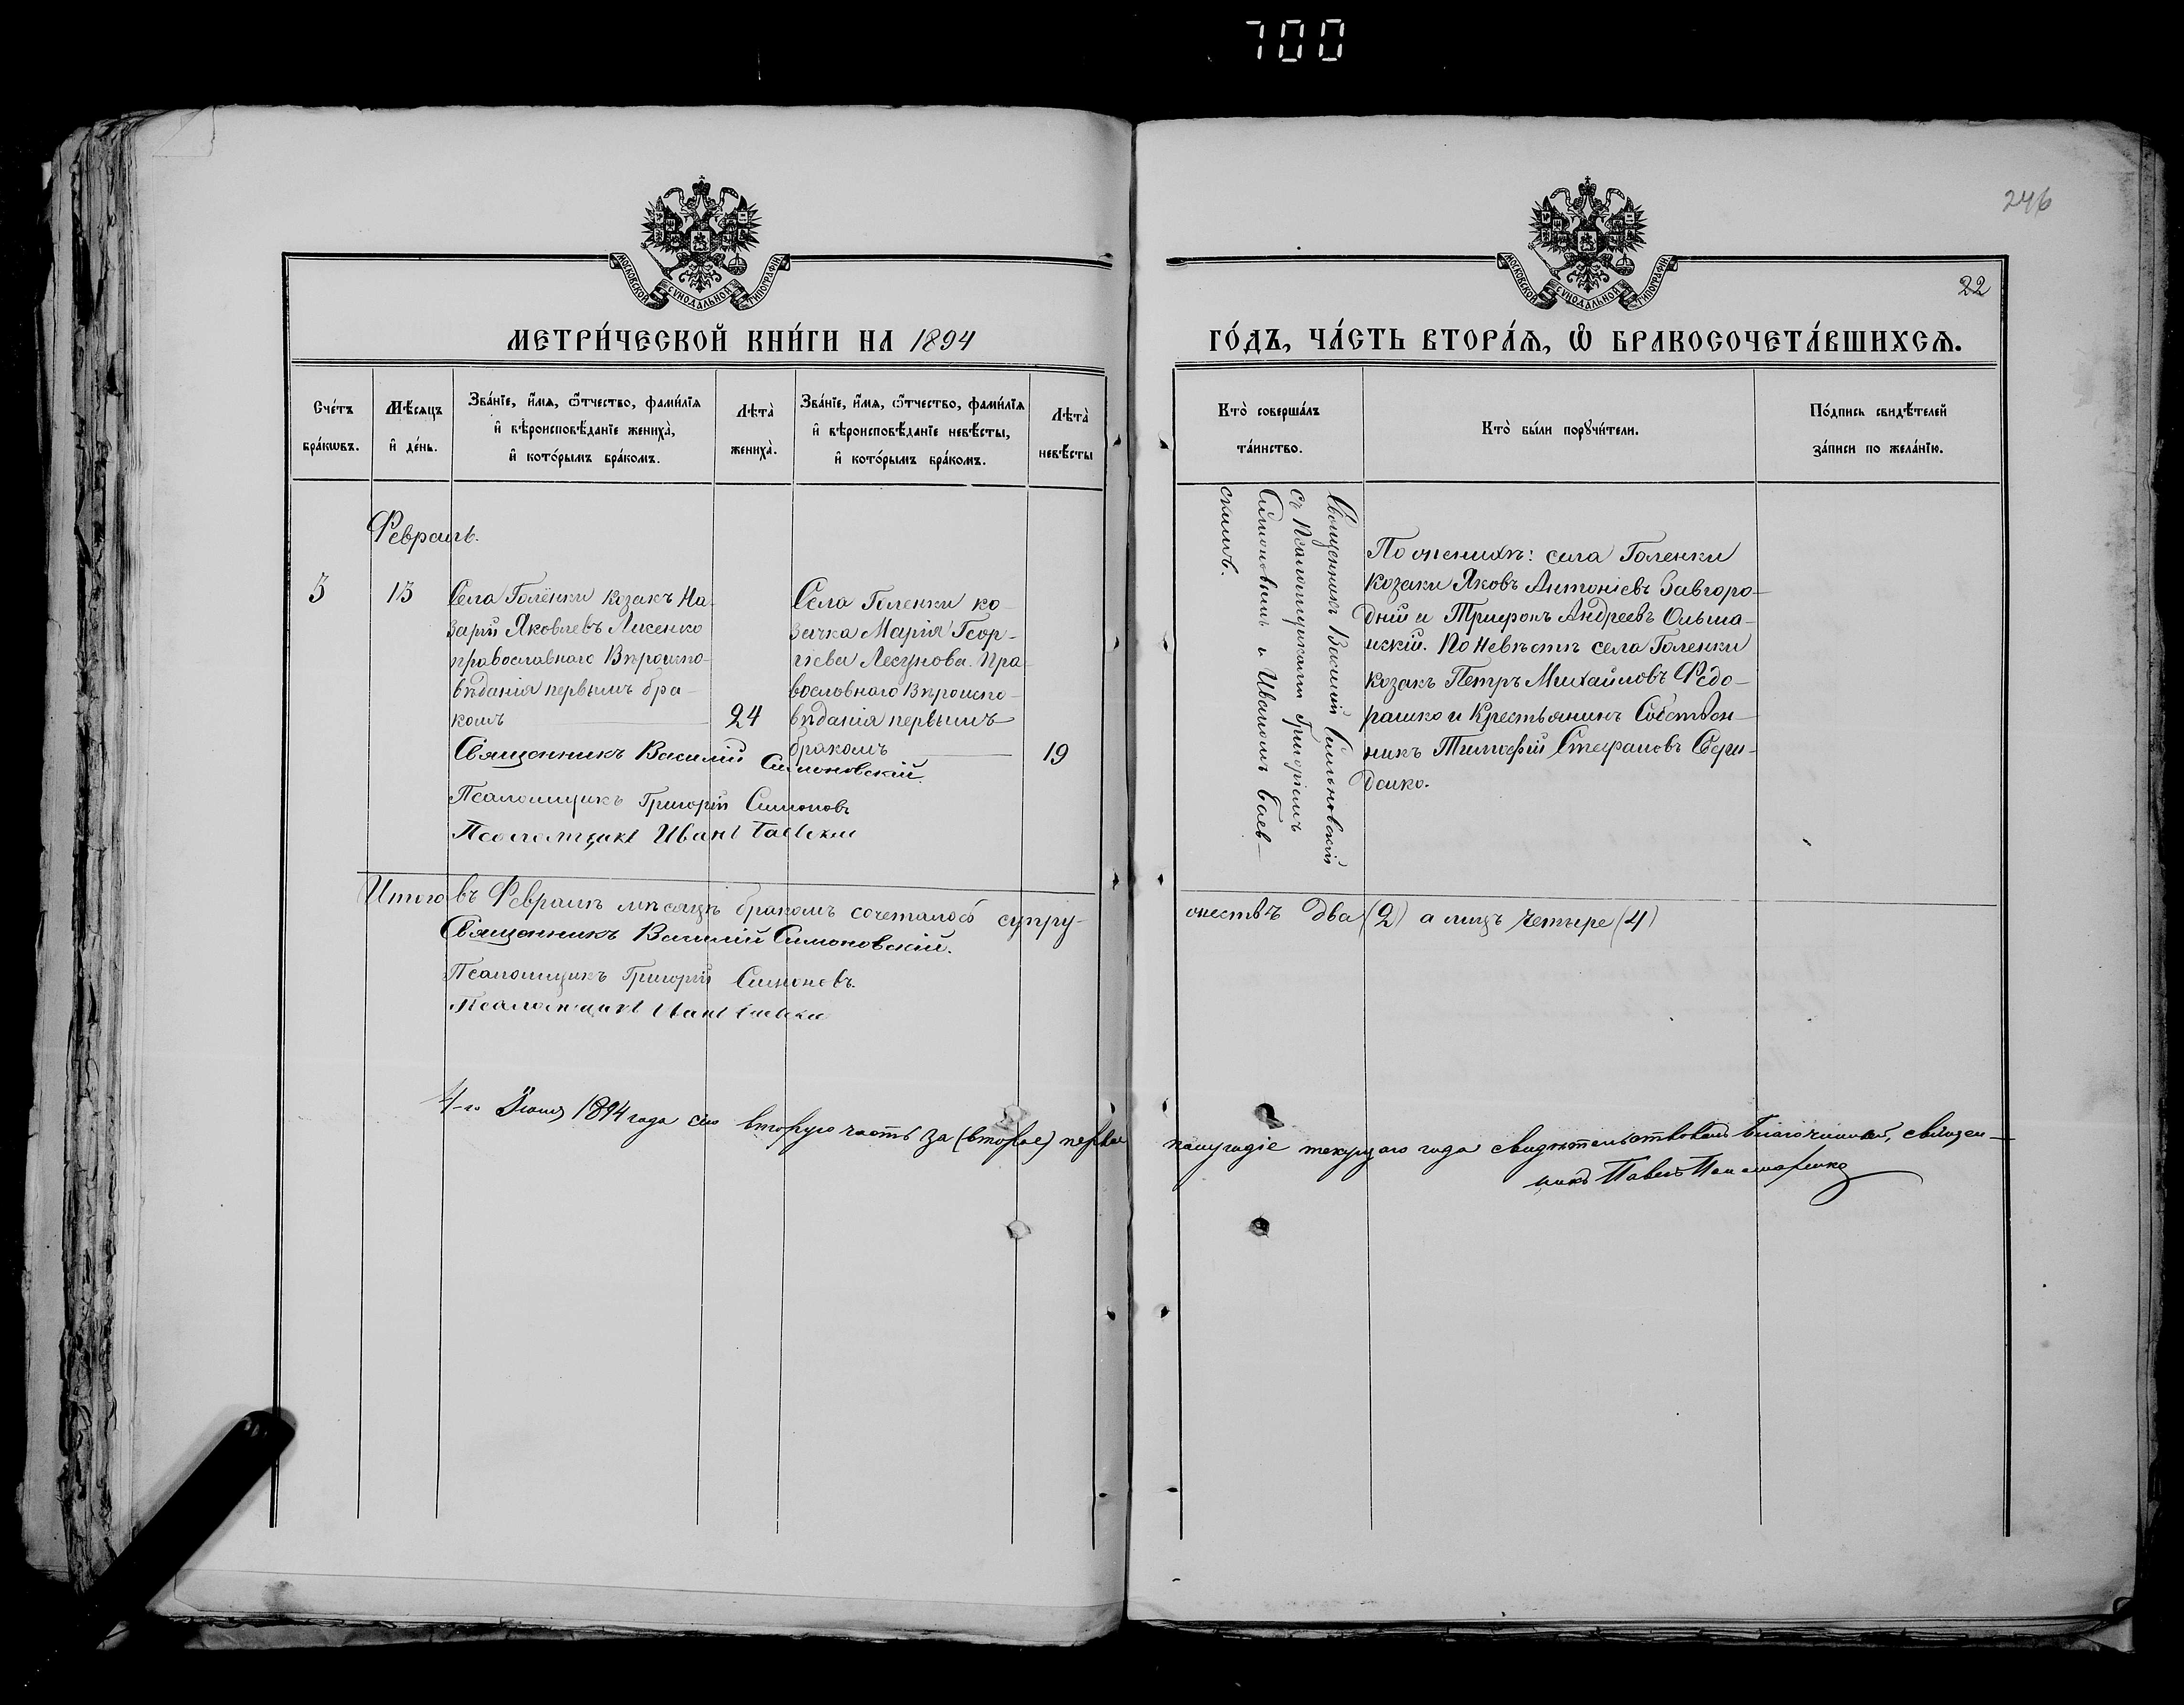 700
246
МОСКОВСКОЙ СѴНОДАЛЬНОЙ ТИПОГРАФІИ
МОСКОВСКОЙ СѴНОДАЛЬНОЙ ТИПОГРАФІИ
22
МЕТРИ́ЧЕСКОЙ КНИ́ГИ НА 1894
ГО́ДЪ, ЧА́СТЬ ВТОРА́Ѧ, Ѡ҆ БРАКОСОЧЕТА́ВШИХСѦ.
Сче́тъ
бра́кѡвъ.
Мѣ́сяцъ
и҆ де́нь.
Зва́нїе, и҆́мѧ, ѻ҆́тчество, фами́лїѧ
и҆ вѣроисповѣ́данїе жениха̀,
и҆ кото́рымъ бра́комъ.
Лѣта̀
жениха̀.
Зва́нїе, и҆́мѧ, ѻ҆́тчество, фами́лїѧ
и҆ вѣроисповѣ́данїе невѣ́сты,
и҆ кото́рымъ бра́комъ.
Лѣта̀
невѣ́сты
Кто̀ соверша́лъ
та́инство.
Кто̀ бы́ли порꙋчи́тели.
По́дпись свидѣ́телей
за́писи по жела́нїю.
Февраль.
3
13
Села Голенки козакъ На-
зарій Яковлевъ Лисенко
православнаго Вѣроиспо-
вѣданія первымъ бра-
комъ
24
Села Голенки ко-
зачка Марія Геор-
гіева Лесунова. Пра-
вославнаго Вѣроиспо-
вѣданія первымъ
бракомъ
19
Священникъ Василій Симоновскій
Псаломщикъ Григорій Симоновъ
Псаломщикъ Иванъ Баевскій
Священникъ Василій Симоновскій
съ Псаломщиками Григоріемъ
Симоновымъ и Иваномъ Баев-
скимъ.
По женихѣ: села Голенки
козаки Яковъ Антоніевъ Завгоро-
дній и Трифонъ Андреевъ Ольша-
нскій. По Невѣстѣ села Голенки
козакъ Петръ Михайловъ Федо-
рашко и Крестьянинъ Собствен-
никъ Тимофей Стефановъ Сери-
денко.
Итого въ Февралѣ мѣсяцѣ бракомъ сочеталось супру-
жествъ два (2) а лицъ четыре (4)
Священникъ Василій Симоновскій.
Псаломщикъ Григорій Симоновъ.
Псаломщикъ Иванъ Баевскій
4-го Іюня 1894 года сію вторую часть за (второе) первое
полугодіе текущаго года свидѣтельствовалъ Благочинный, священ-
никъ Павелъ Пономаренко